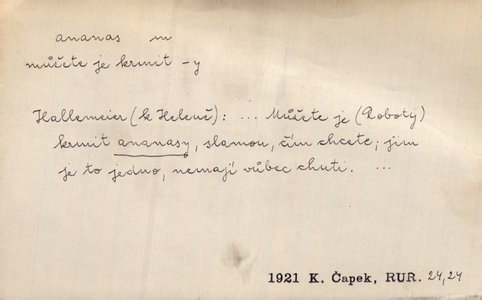 ananas m
můžete je krmit -y
Hallemeier (k Heleně): ... Můžete je (Roboty)
krmit ananasy, slamou, čím chcete; jim
je to jedno, nemají vůbec chuti. ...
1921 K. Čapek, RUR. 24,24